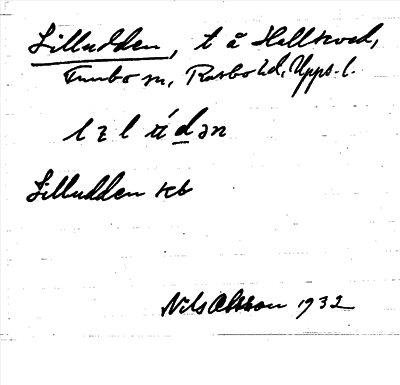 Lilludden, t å Hallkved,
Funbo sn, Rasbo hd, Upps. l.
Lilludden kb
Nils Olsson 1932